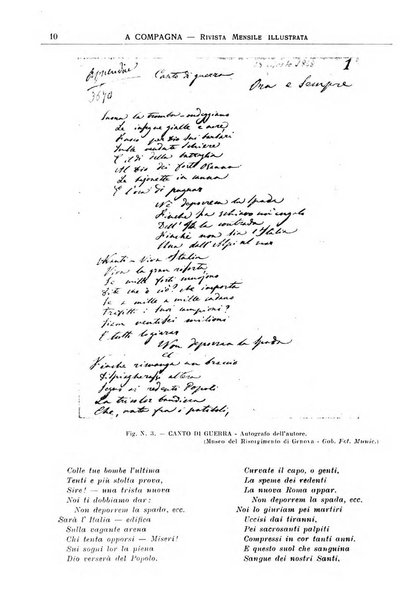 10 A COMPAGNA — Rivista Mensile Illustrata
1
Canto di guerra
Ora e Sempre
Suona la tromba ondeggiano
Le insegne gialle e nere
Fuoco per Dio sui barbari
Sulle vendute schiere
È il dì della battaglia
Al Dio dei forti Osanna
Le bajonette in canna
È l'ora di pugnar
Nè deporrem la spada
Finchè sia schiavo un angolo
Dell'Itala contrada
Finchè non sia l'Italia
Una dall'Alpi al mar
Avanti — Viva Italia
Viva la gran risorta
Se mille forti muojono
Dite che è ciò? che importa
Se a mille a mille cadono
Trafitti i suoi campioni?
Siam ventisei milioni
E tutti
Non deporrem la spada
Finchè rimanga un braccio
Segno ai redenti Popoli
La tricolor bandiera
Che, nata fra i patiboli,
Fig. N. 3. — CANTO DI GUERRA - Autografo dell'autore.
(Museo del Risorgimento di Genova - Gob. Fot. Munic.)
Colle tue bombe l'ultima
Tenti e più stolta prova,
Sire! — una trista nuova
Noi ti dobbiamo dar:
Non deporrem, ecc.
Sarà l'Italia — edifica
Sulla vagante arena
Chi l'oppugnò — Miseri!
Sui sogni lor la piena
Dio verserà del Popolo.
Curvate il capo, o genti,
La speme dei redenti
La nuova Roma appar.
Non deporrem la spada, ecc.
Noi lo giuriam pei martiri
Uccisi dai tiranni,
Pei sacrosanti palpiti
Compressi in cor tanti anni
E questo suol che sanguina
Sangue dei nostri Santi,